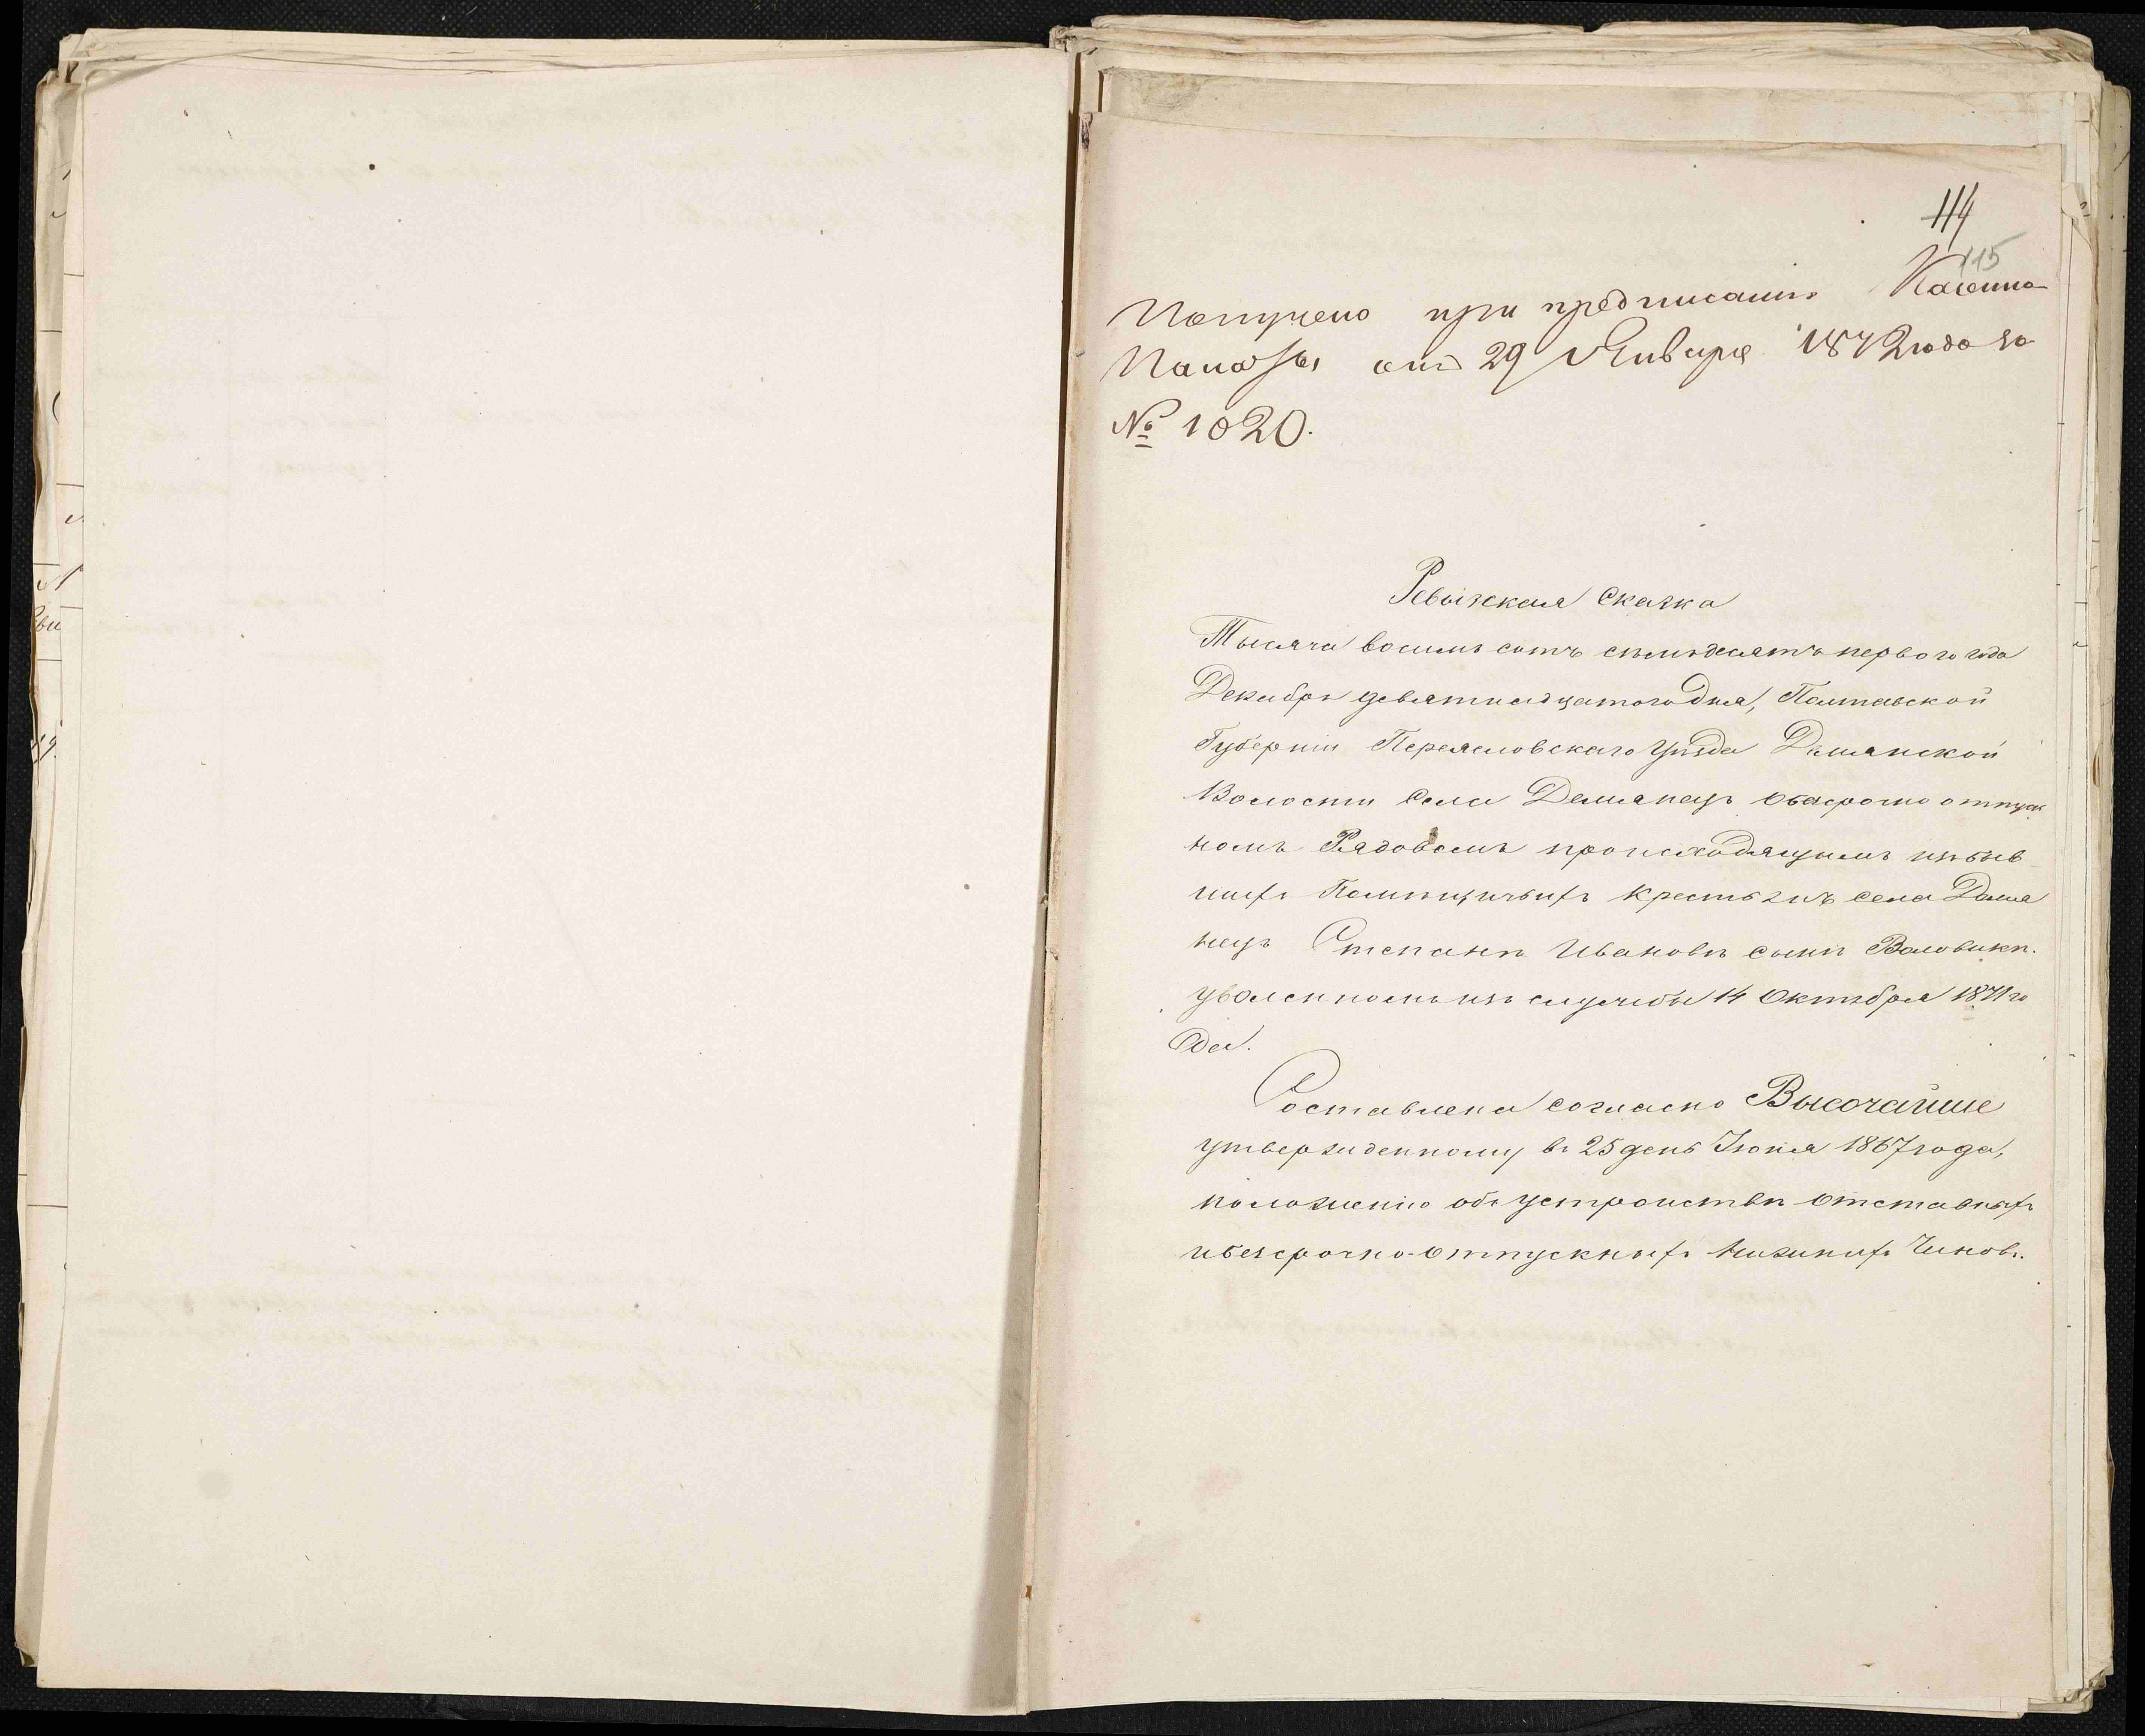 114
115
Получено при предписании Казенно
Палаты отъ 29 Января 1872 года за
№ 1020.
Ревизская Сказка
Тысяча восемь сотъ семьдесятъ первого года
Декабря девятнадцатого дня, Полтавской
Губернии Переясловскаго Уѣзда Демянской
Волости Села Демянецъ безсрочно отпуск
номъ Рядовомъ происходящимъ изъ быв
шихъ Помѣщичьихъ крестьянъ села Демя
нецъ Степанѣ Ивановѣ сынѣ Воловикѣ.
уволенномъ изъ службы 14 Октября 1871 го
да.
Составлена согласно Высочайше
утвержденному въ 25 день Іюня 1867 года,
положенію объ устройствѣ отставныхъ
и безсрочно-отпускныхъ Нижнихъ Чиновъ.